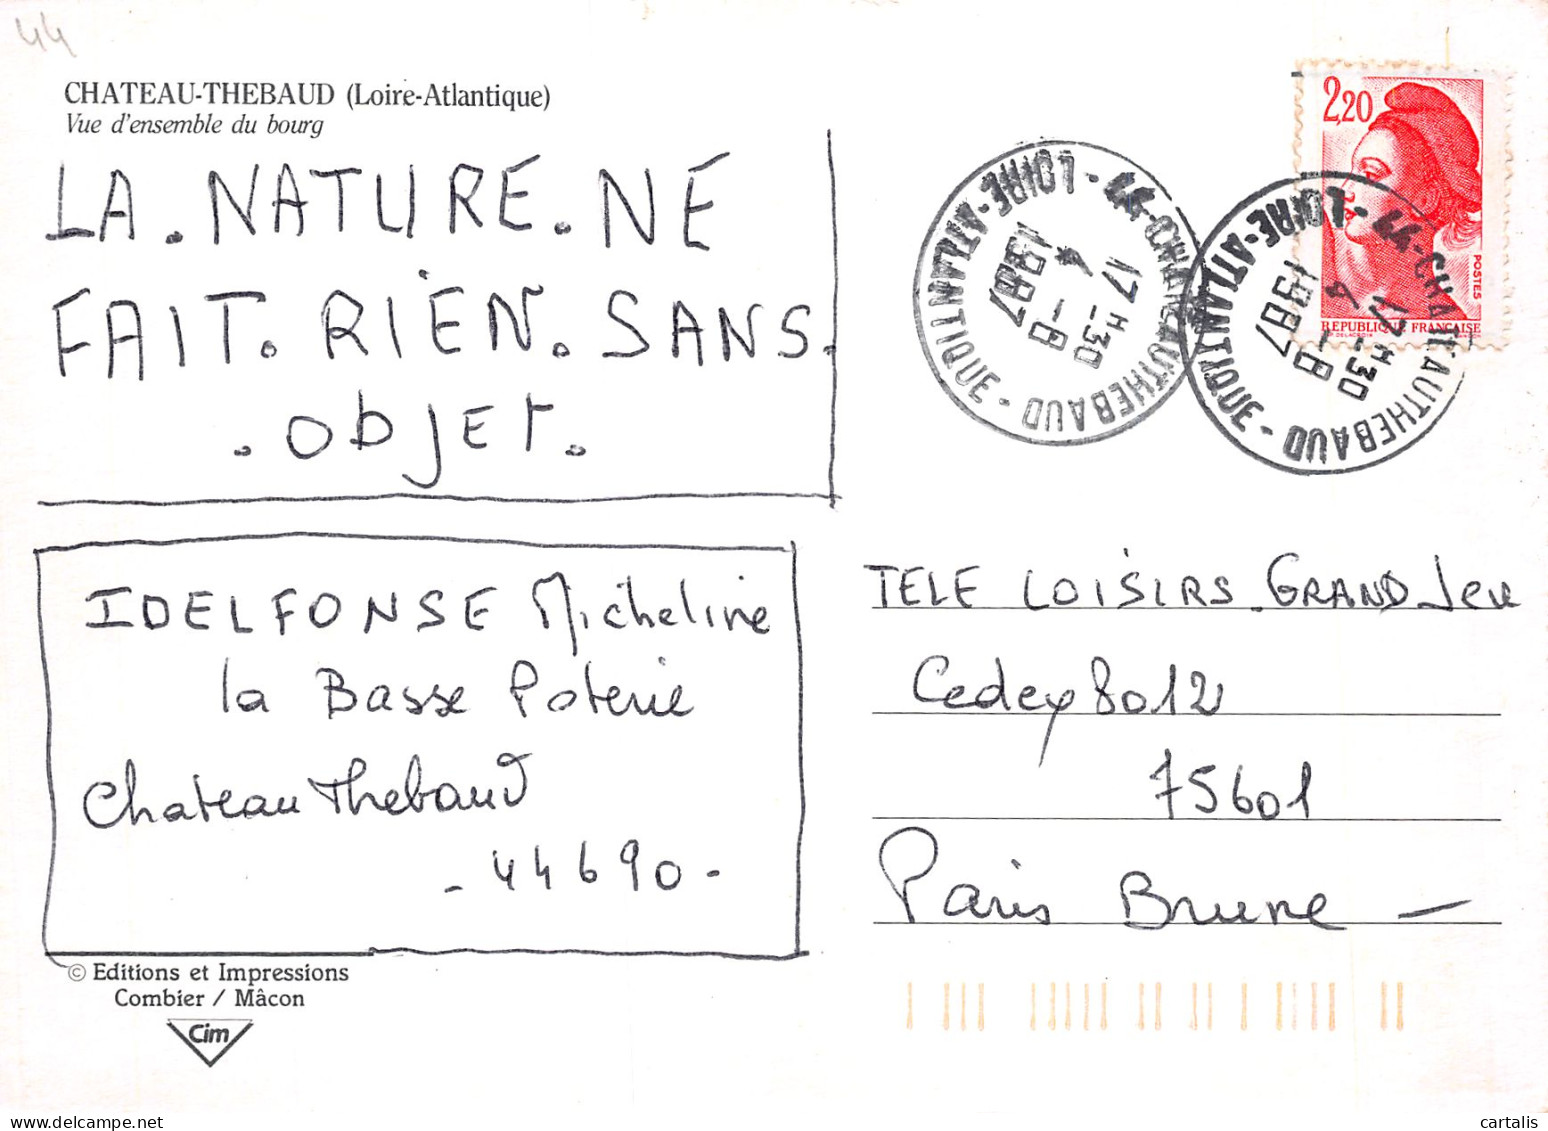 44
CHATEAU-THEBAUD (Loire-Atlantique)
Vue d'ensemble du bourg
LA. NATURE. NE
FAIT. RIEN. SANS.
. OBJET.
IDELFONSE Micheline
la Basse Poterie
Chateau Thebaud
- 44690 -
© Editions et Impressions
Combier / Mâcon
Cim
2,20
POSTES
REPUBLIQUE FRANÇAISE
44-CHATEAUTHEBAUD - LOIRE-ATLANTIQUE -
17H30
4 - 8
1987
44-CHATEAUTHEBAUD - LOIRE-ATLANTIQUE -
17H30
4 - 8
1987
TELE LOISIRS. GRAND Jeu
Cedex 8012
75601
Paris Brune -
cartalis.com